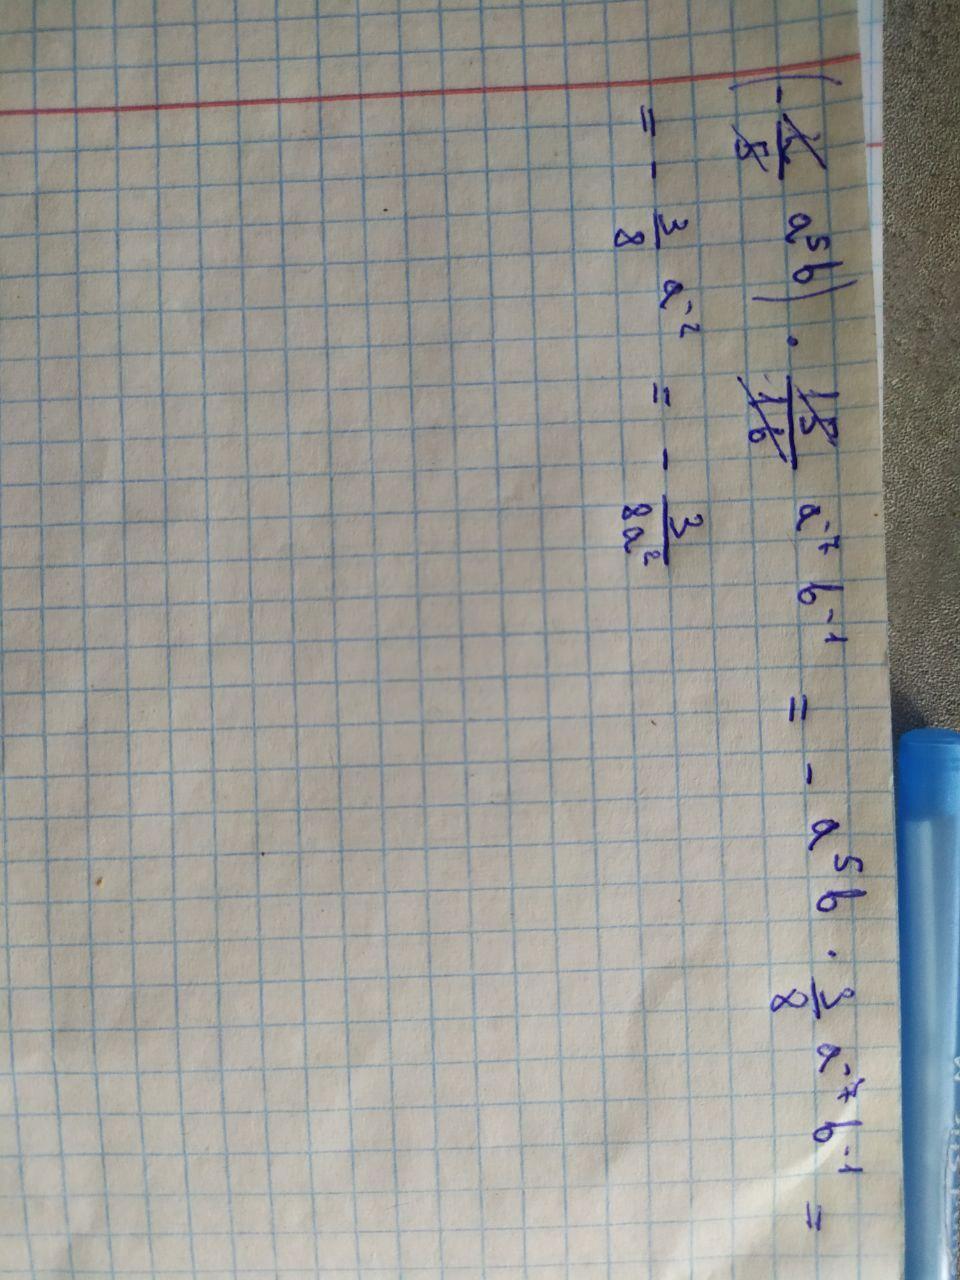 (-2/5 a⁵b) · 15/16 a⁻⁷ b⁻¹ = - a⁵b · 3/8 a⁻⁷ b⁻¹ =
= - 3/8 a⁻² = - 3/8a²